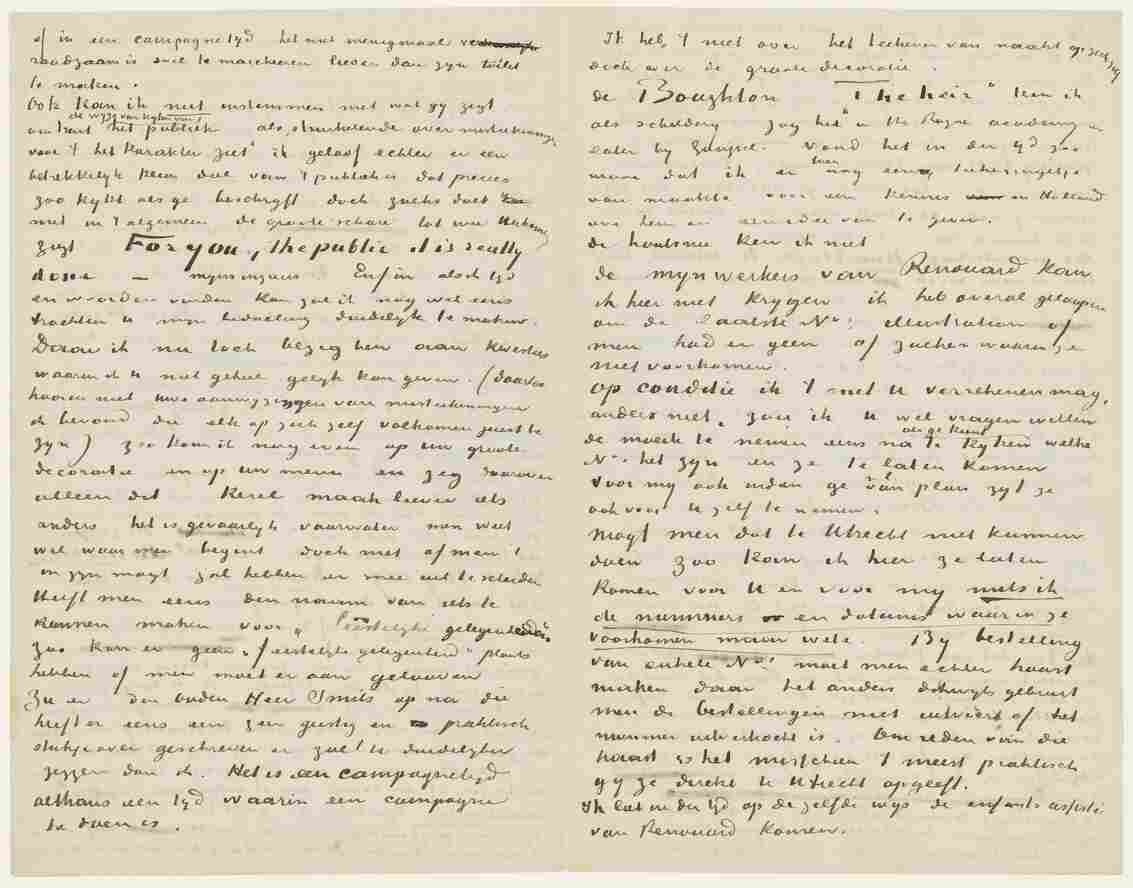 of in een campagnetyd het niet menigmaal
raadzaam is snel te marcheeren liever dan zyn toilet
te maken.
Ook kan ik niet instemmen met wat gy zegt
de wyze van kyken van
omtrent het publiek als struikelende over
voor 't het karakter ziet" ik geloof echter er een
betrekkelyk klein deel van 't publiek is dat precies
zoo kykt als ge beschryft doch zulks doet
niet in 't algemeen de groote schare tot wie Herkomer
zegt For you, the public it is really
done — Enfin als ik tyd
en woorden vinden kan zal ik nog wel eens
trachten U myn bedoeling duidelyk te maken.
Daar ik nu toch bezig ben aan kwesties
waarin ik U niet geheel gelyk kan geven. (daartoe
hooren niet uwe aanwyzingen van misteekeningen
ik bevond die elk op zich zelf volkomen juist te
zyn) zoo kom ik nog even op uw groote
decoratie en op uw menu en zeg daarover
alleen dit Kerel maak liever iets
anders het is gevaarlyk vaarwater men weet
wel waar men begint doch niet of men 't
in zyn magt zal hebben er mee uit te scheiden
Heeft men eens den naam van iets te
kunnen maken voor „feestelyke gelegenheden"
zoo kan er geen „feestelyke gelegenheid" plaats
hebben of men moet er aan gelooven
Zie er den ouden Heer Smits op na die
heeft er eens een zeer geestig en praktisch
stukje over geschreven en zal 't U duidelyker
zeggen dan ik. Het is een campagnetyd
althans een tyd waarin een campagne
te doen is.
Ik heb 't niet over het teekenen van naakt
doch over de groote decoratie.
de Boughton "The heir" ken ik
als schildery zag het in the Royal academy en
later by Goupil. Vond het in der tyd zoo
mooi dat ik er toen nog een teekeningetje
van maakte voor een kennis in Holland
om hem er een idee van te geven.
de houtsnee ken ik niet
de mynwerkers van Renouard kan
ik hier niet krygen ik heb overal geloopen
om de laatste Nos. illustration of
men had er geen of zulken waarin ze
niet voorkomen.
Op conditie ik 't met U verrekenen mag,
anders niet, zou ik U wel vragen willen
als ge kunt
de moeite te nemen eens na te kyken welke
Nos. het zyn en ze te laten komen
voor my ook indien ge van plan zyt ze
ook voor U zelf te nemen.
Mogt men dat te Utrecht niet kunnen
doen zoo kan ik hier ze laten
komen voor U en voor my mits ik
de nummers en datums waarin ze
voorkomen maar wete. By bestelling
van enkele Nos. moet men echter haast
maken daar het anders dikwyls gebeurt
men de bestellingen niet uitvoert of het
nummer uitverkocht is. Om reden van die
haast is het misschien 't meest praktisch
gy ze direkt te Utrecht opgeeft.
Ik liet in der tyd op de zelfde wys de enfants assistés
van Renouard komen.